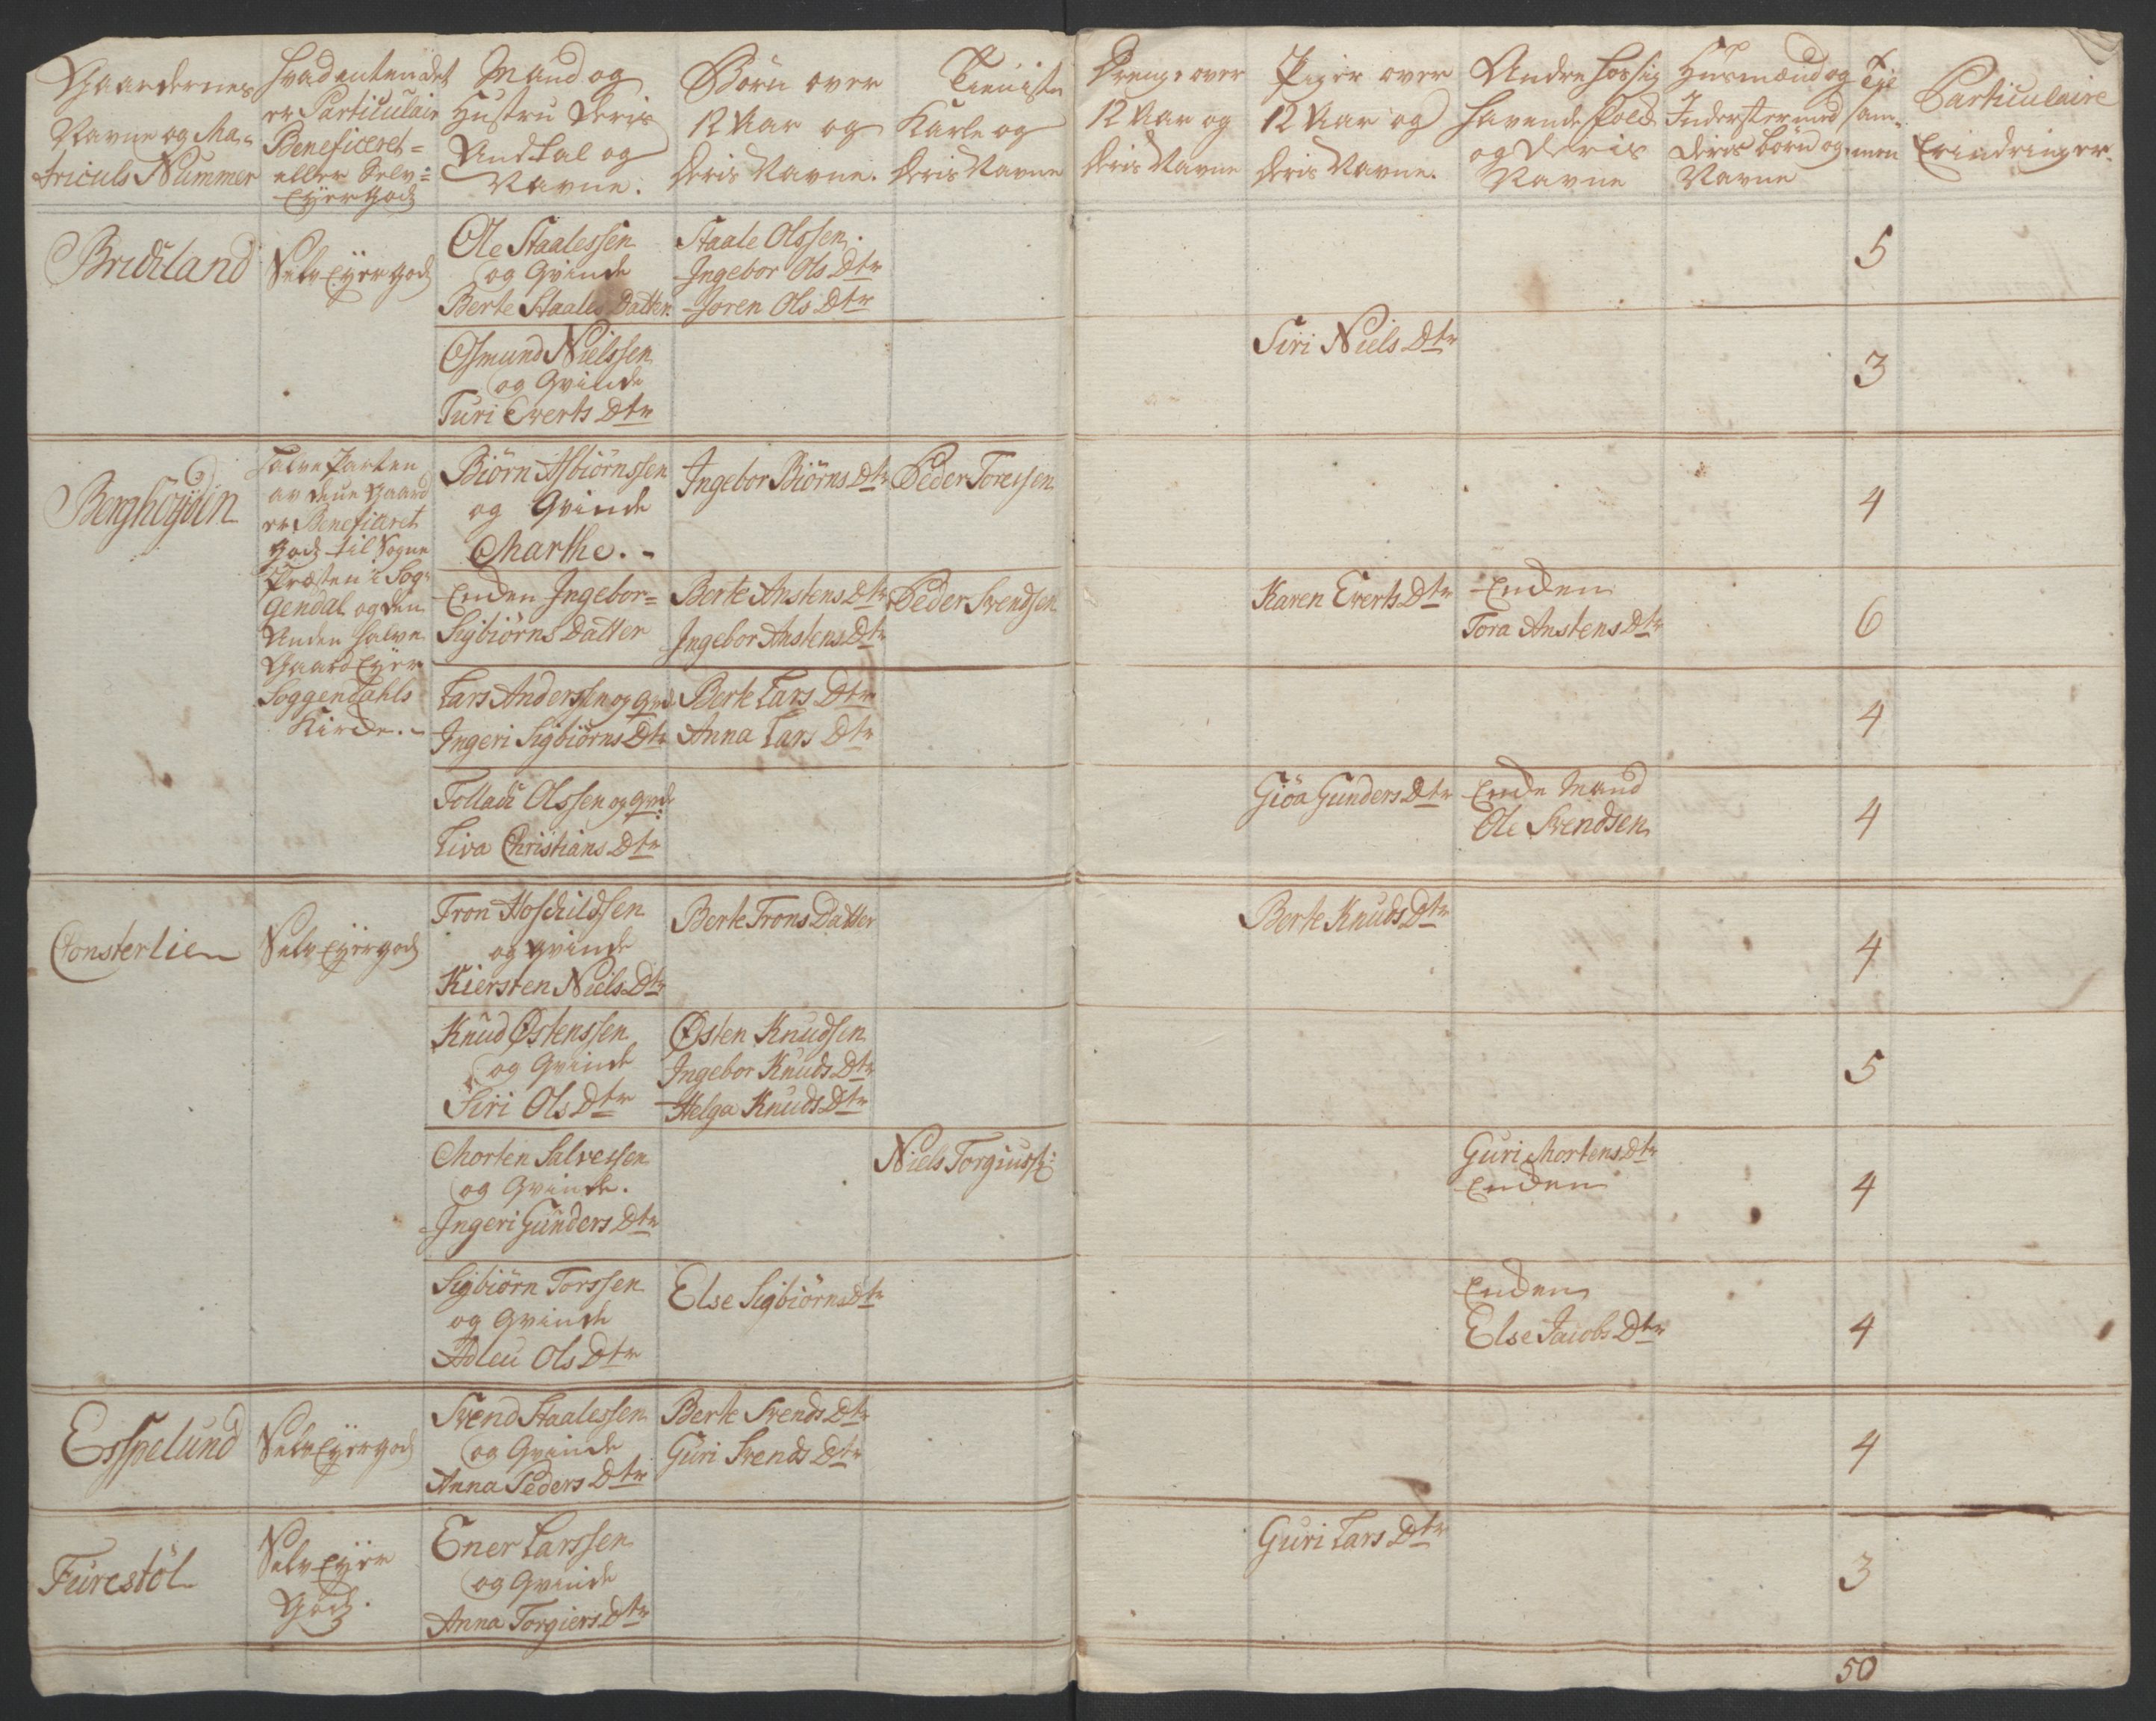 Gaardernes
Navne og Ma-
triculs Nummer
Hvad enten det
er Particulair
Beneficeret-
eller Selv-
Eyergods
Mand og
Hustru Deris
Andtal og
Navne.
Børn over
12 Aar og
Deris Navne.
Tieniste
Karle og
Deris Navne
Drenge over
12 Aar og
Deris Navne
Piger over
12 Aar og
Deris Navne.
Andre hos sig
havende Folck
og Deris
Navne
Husmænd og
Inderster med
Deris børn og
Navne
Til
sam-
men
Particulaire
Erindringer.
Bruduland
Selv Eyergods
Ole Staalessen
og Qvinde
Berte Staales Datter.
Staale Olssen.
Ingebor Ols Dtr
Joren Ols Dtr
5
Osmund Nielssen
og Qvinde
Turi Everts Dtr
Siri Niels Dtr
3
Berghøyden
Halve Parten
av denne Gaard
er Beneficeret
Gods til Sogne
Præsten i Sog-
gendal og den
Anden halve
Gaard Eyer
Soggendahls
Kirche.-
Biörn Asbiörnssen
og Qvinde
Marthe.-
Ingebor Biörns Dtr
Peder Toressen
4
Enden Ingebor-
Sigbiörns Datter
Berte Anstens Dtr
Ingebor Anstens Dtr
Peder Svendsen
Karen Everts Dtr
Enden
Tora Anstens Dtr
6
Lars Anderssen og Qvd:
Ingeri Sigbiörns Dtr
Berte Lars Dtr
Anna Lars Dtr
4
Tolladü Olssen og Qvd:
Liva Christians Dtr
Giöa Gunders Dtr
Ende Mand
Ole Svendsen
4
Consterlien
Selv Eyergods
Tron Hoschildsen
og Qvinde
Kiersten Niels Dtr
Berte Trons Datter
Berte Knuds Dtr
4
Knud Østenssen
og Qvinde
Siri Ols Dtr
Østen Knudsen
Ingebor Knuds Dtr
Helga Knuds Dtr
5
Morten Salvessen
og Qvinde.
Ingeri Gunders Dtr
Niels Torgiuss:
Guri Mortens Dtr
Enden
4
Sigbiörn Torssen
og Qvinde
Adleu Ols Dtr
Else Sigbiörns Dtr
Enden
Else Jacobs Dtr
4
Esspelund
Selv Eyergods
Svend Staalessen
og Qvinde
Anna Peders Dtr
Berte Svends Dtr
Guri Svends Dtr
4
Furestöl
Selv Eyer
Gods.
Ener Larssen
og Qvinde
Anna Torgiers Dtr
Guri Lars Dtr
3
50